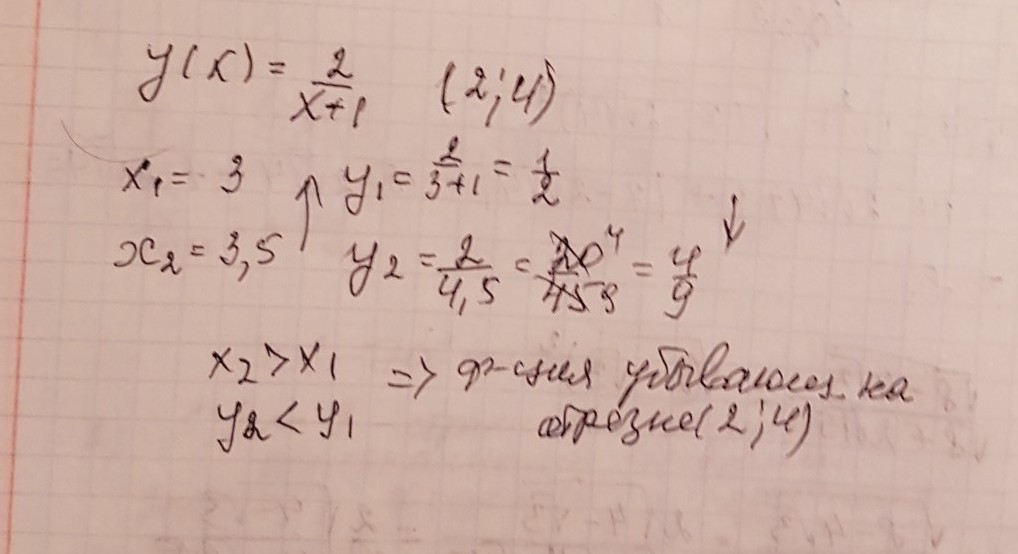 y(x) = 2/(x+1) (2;4)
x₁ = 3 ↑ y₁ = 2/(3+1) = 1/2
x₂ = 3,5 y₂ = 2/4,5 = 20/45 4/9 = 4/9 ↓
x₂ > x₁ => ф-ция убывающ. на
y₂ < y₁ отрезке (2;4)